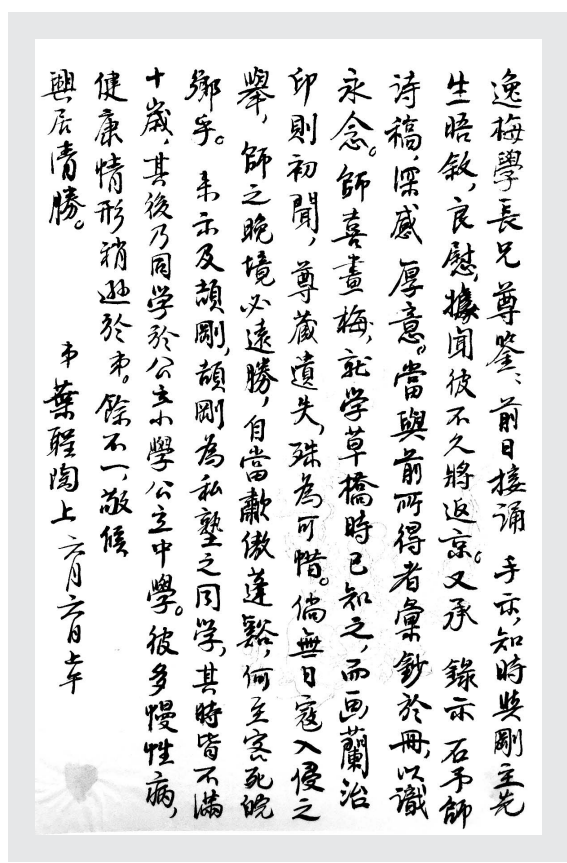 逸梅學長兄尊鉴：前日接誦 手示，知時與剛主先
生晤敘，良慰，據聞彼不久將返京。又承 錄示 石予師
诗稿，深感 厚意。當與前所得者彙鈔於冊，以識
永念。師喜畫梅，就学草橋時已知之，而画蘭治
印則初聞，尊藏遺失，殊為可惜。倘無日寇入侵之
舉，師之晚境必遠勝，自當歗傲蓬谿，何至客死皖
鄉乎。来示及頡剛，頡剛為私塾之同学，其時皆不滿
十歲，其後乃同学於公立小學公立中學。彼多慢性病，
健康情形稍遜於弟。餘不一，敬候
興居清勝。
弟葉聖陶上 六月六日上午